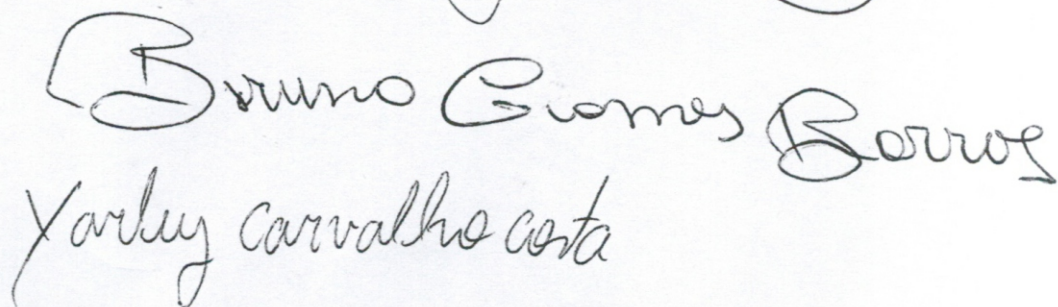 Bruno Gomes Barros
Yarley Carvalho Costa